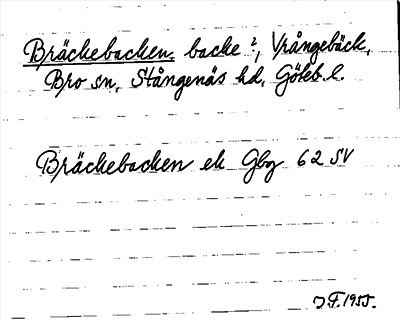 Bräckebacken, backe?, Vrångebäck,
Bro sn, Stångenäs hd, Göteb. l.
Bräckebacken ek Gbg 62 SV
J F. 1955.